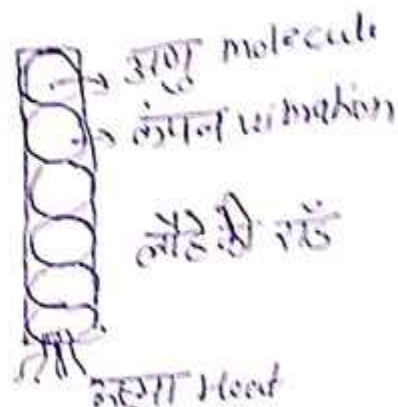 अणु molecule
कंपन vibration
लोहे की रॉड
उष्मा Heat